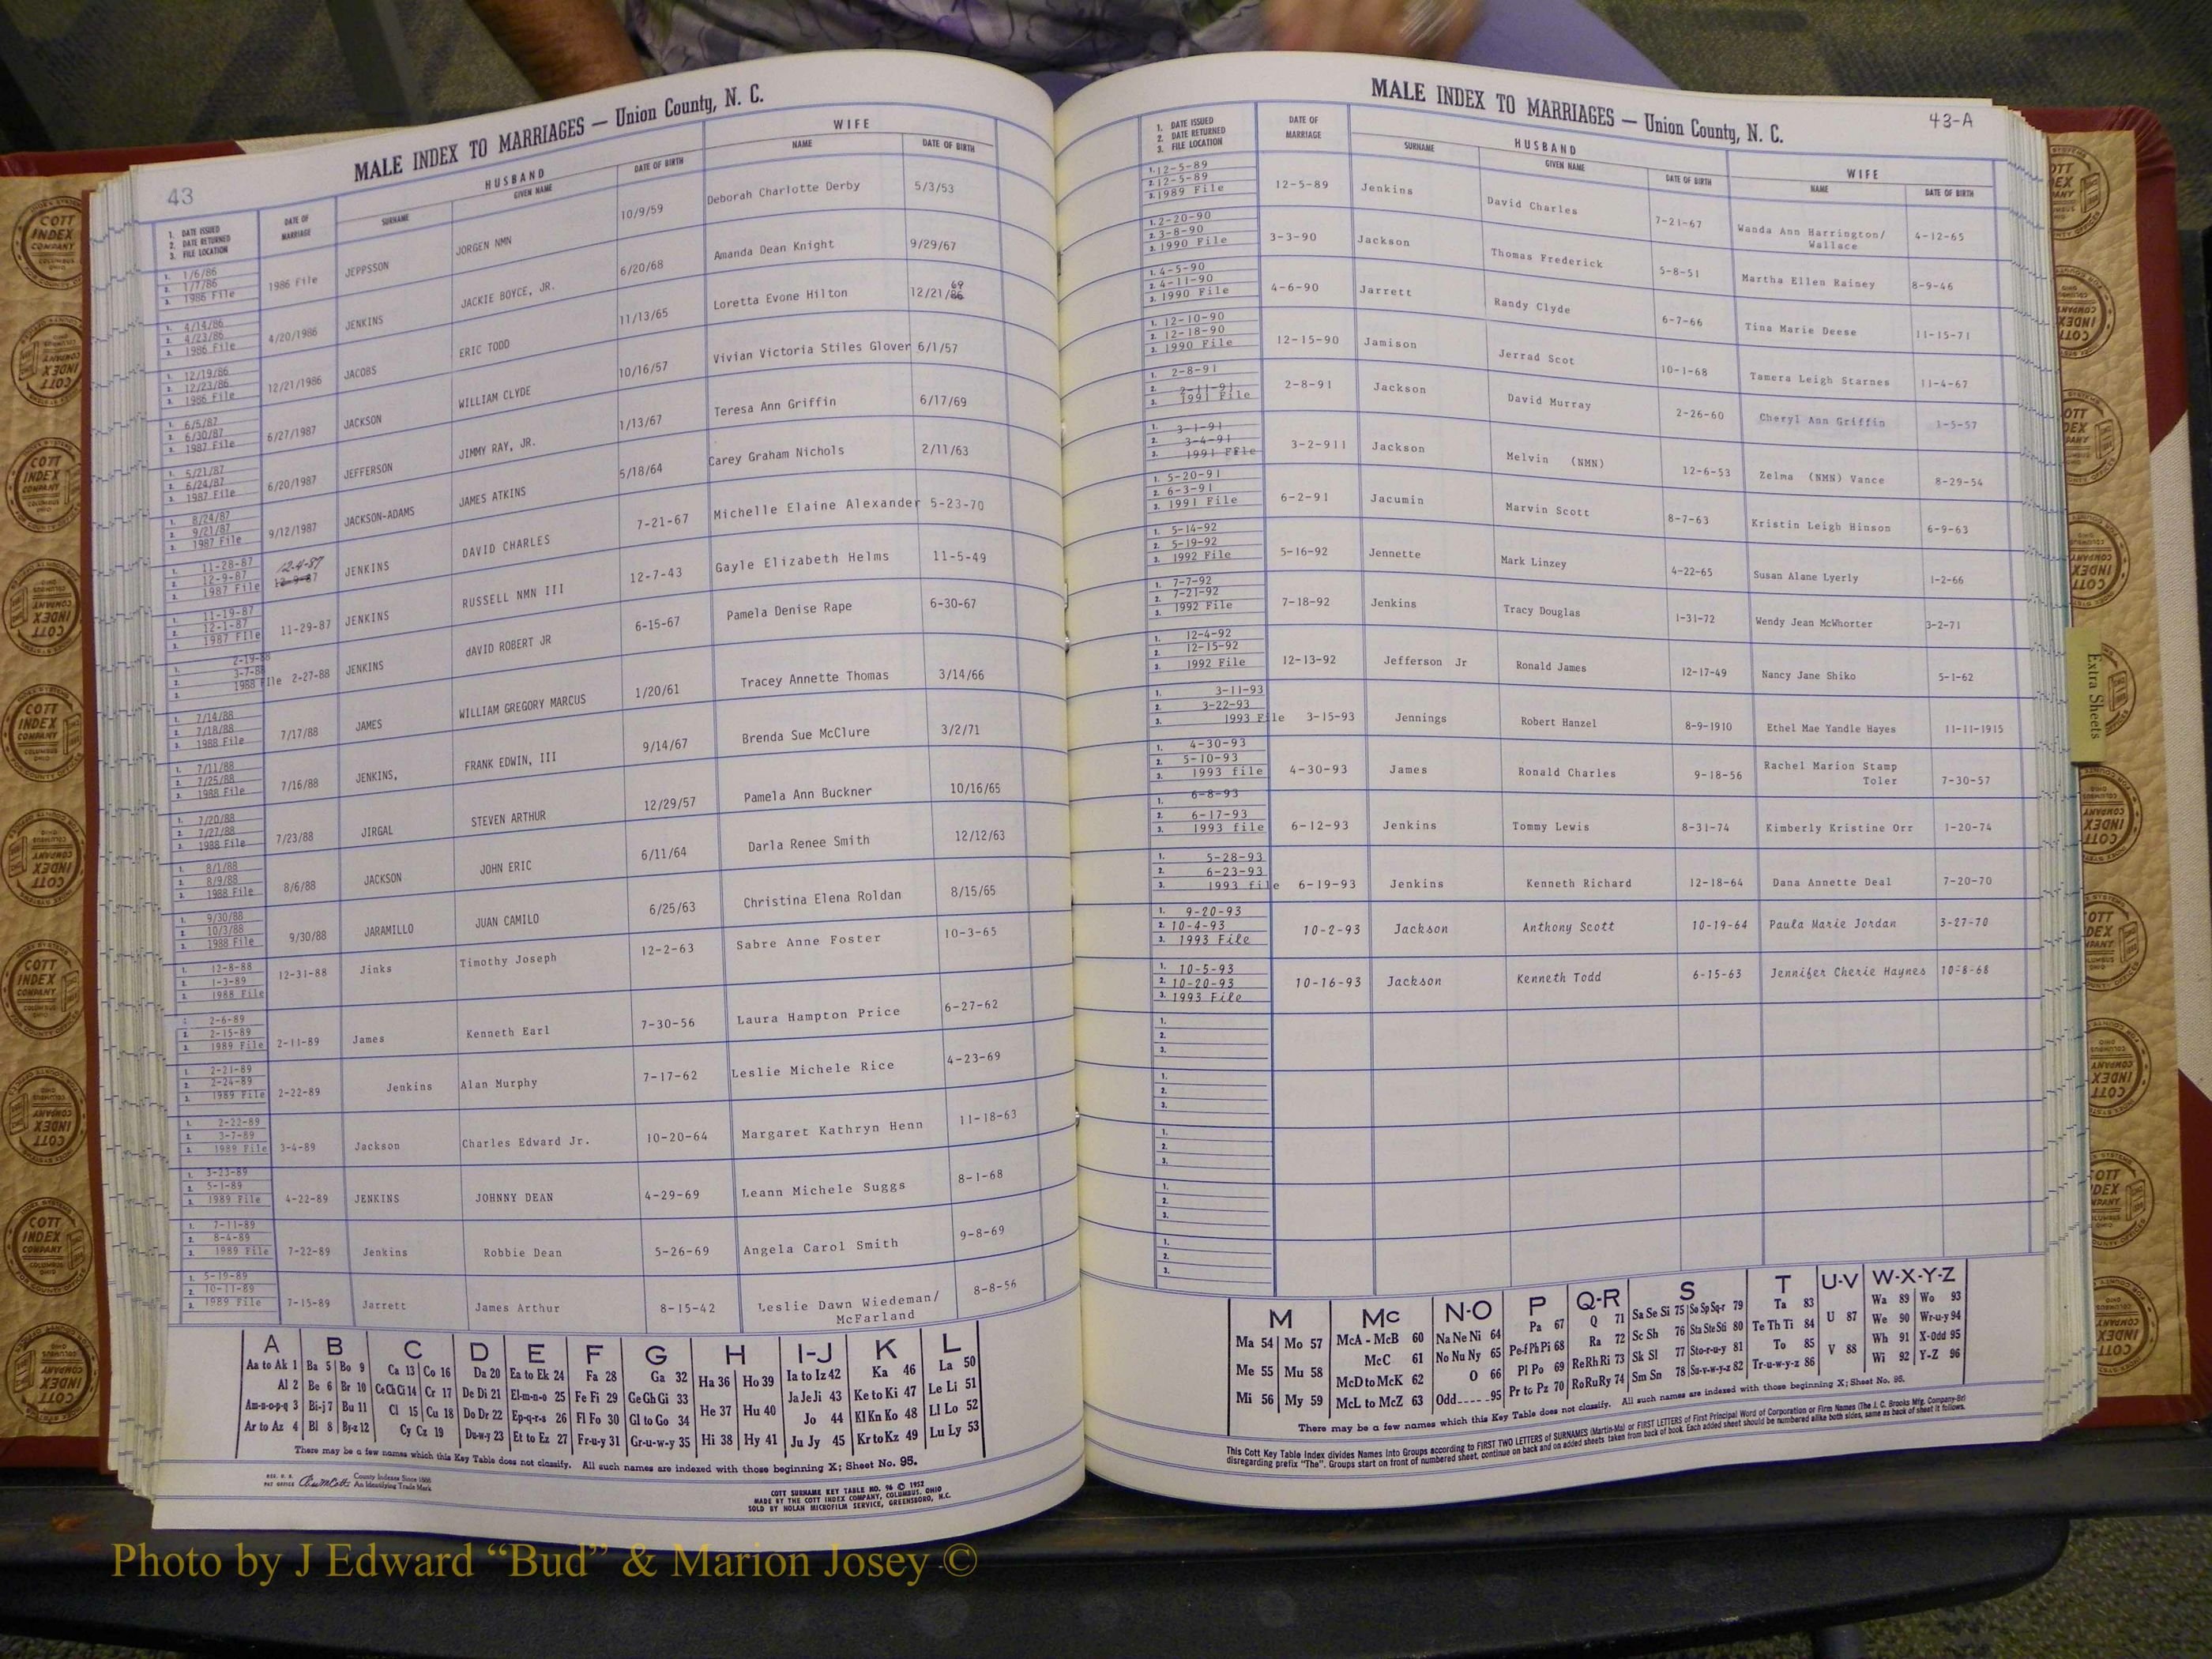 43
MALE INDEX TO MARRIAGES — Union County, N. C.
1. DATE ISSUED
2. DATE RETURNED
3. FILE LOCATION
DATE OF MARRIAGE
HUSBAND
SURNAME
GIVEN NAME
DATE OF BIRTH
WIFE
NAME
DATE OF BIRTH
1. 1/6/86
2. 1/7/86
3. 1986 File
1986 File JEPPSSON JORGEN NMN 10/9/59 Deborah Charlotte Derby 5/3/53
1. 4/14/86
2. 4/23/86
3. 1986 File
4/20/1986 JENKINS JACKIE BOYCE, JR. 6/20/68 Amanda Dean Knight 9/29/67
1. 12/19/86
2. 12/23/86
3. 1986 File
12/21/1986 JACOBS ERIC TODD 11/13/65 Loretta Evone Hilton 12/21/86 69
1. 6/5/87
2. 6/30/87
3. 1987 File
6/27/1987 JACKSON WILLIAM CLYDE 10/16/57 Vivian Victoria Stiles Glover 6/1/57
1. 5/21/87
2. 6/24/87
3. 1987 File
6/20/1987 JEFFERSON JIMMY RAY, JR. 1/13/67 Teresa Ann Griffin 6/17/69
1. 8/24/87
2. 9/21/87
3. 1987 File
9/12/1987 JACKSON-ADAMS JAMES ATKINS 5/18/64 Carey Graham Nichols 2/11/63
1. 11-28-87
2. 12-9-87
3. 1987 File
12-4-87
12-9-87 JENKINS DAVID CHARLES 7-21-67 Michelle Elaine Alexander 5-23-70
1. 11-19-87
2. 12-1-87
3. 1987 File
11-29-87 JENKINS RUSSELL NMN III 12-7-43 Gayle Elizabeth Helms 11-5-49
1. 2-19-88
2. 3-7-88
3. 1988 File
2-27-88 JENKINS dAVID ROBERT JR 6-15-67 Pamela Denise Rape 6-30-67
1. 7/14/88
2. 7/18/88
3. 1988 File
7/17/88 JAMES WILLIAM GREGORY MARCUS 1/20/61 Tracey Annette Thomas 3/14/66
1. 7/11/88
2. 7/25/88
3. 1988 File
7/16/88 JENKINS, FRANK EDWIN, III 9/14/67 Brenda Sue McClure 3/2/71
1. 7/20/88
2. 7/27/88
3. 1988 File
7/23/88 JIRGAL STEVEN ARTHUR 12/29/57 Pamela Ann Buckner 10/16/65
1. 8/1/88
2. 8/9/88
3. 1988 File
8/6/88 JACKSON JOHN ERIC 6/11/64 Darla Renee Smith 12/12/63
1. 9/30/88
2. 10/3/88
3. 1988 File
9/30/88 JARAMILLO JUAN CAMILO 6/25/63 Christina Elena Roldan 8/15/65
1. 12-8-88
2. 1-3-89
3. 1988 File
12-31-88 Jinks Timothy Joseph 12-2-63 Sabre Anne Foster 10-3-65
1. 2-6-89
2. 2-15-89
3. 1989 File
2-11-89 James Kenneth Earl 7-30-56 Laura Hampton Price 6-27-62
1. 2-21-89
2. 2-24-89
3. 1989 File
2-22-89 Jenkins Alan Murphy 7-17-62 Leslie Michele Rice 4-23-69
1. 2-22-89
2. 3-7-89
3. 1989 File
3-4-89 Jackson Charles Edward Jr. 10-20-64 Margaret Kathryn Henn 11-18-63
1. 3-23-89
2. 5-1-89
3. 1989 File
4-22-89 JENKINS JOHNNY DEAN 4-29-69 Leann Michele Suggs 8-1-68
1. 7-11-89
2. 8-4-89
3. 1989 File
7-22-89 Jenkins Robbie Dean 5-26-69 Angela Carol Smith 9-8-69
1. 5-19-89
2. 10-11-89
3. 1989 File
7-15-89 Jarrett James Arthur 8-15-42 Leslie Dawn Wiedeman/ 8-8-56
McFarland
A B C D E F G H I-J K L
Aa to Ak 1 Ba 5 Bo 9 Ca 13 Co 16 Da 20 Ea to Ek 24 Fa 28 Ga 32 Ha 36 Ho 39 Ia to Iz 42 Ka 46 La 50
Al 2 Be 6 Br 10 Ce Ch Ci 14 Cr 17 De Di 21 El-m-n-o 25 Fe Fi 29 Ge Gh Gi 33 He 37 Hu 40 Ja Je Ji 43 Ke to Ki 47 Le Li 51
Am-n-o-p-q 3 Bi-j 7 Bu 11 Cl 15 Cu 18 Do Dr 22 Ep-q-r-s 26 Fl Fo 30 Gl to Go 34 Hi 38 Hy 41 Jo 44 Kl Kn Ko 48 Ll Lo 52
Ar to Az 4 Bl 8 By-z 12 Cy Cz 19 Du-w-y 23 Et to Ez 27 Fr-u-y 31 Gr-u-w-y 35 Ju Jy 45 Kr to Kz 49 Lu Ly 53
There may be a few names which this Key Table does not classify. All such names are indexed with those beginning X; Sheet No. 95.
County Indexes Since 1888
An Identifying Trade Mark
COTT SURNAME KEY TABLE NO. 96 © 1952
MADE BY THE COTT INDEX COMPANY, COLUMBUS, OHIO
SOLD BY NOLAN MICROFILM SERVICE, GREENSBORO, N.C.
MALE INDEX TO MARRIAGES — Union County, N. C.
43-A
1. DATE ISSUED
2. DATE RETURNED
3. FILE LOCATION
DATE OF MARRIAGE
HUSBAND
SURNAME
GIVEN NAME
DATE OF BIRTH
WIFE
NAME
DATE OF BIRTH
1. 12-5-89
2. 12-5-89
3. 1989 File
12-5-89 Jenkins David Charles 7-21-67 Wanda Ann Harrington/ 4-12-65
Wallace
1. 2-20-90
2. 3-8-90
3. 1990 File
3-3-90 Jackson Thomas Frederick 5-8-51 Martha Ellen Rainey 8-9-46
1. 4-5-90
2. 4-11-90
3. 1990 File
4-6-90 Jarrett Randy Clyde 6-7-66 Tina Marie Deese 11-15-71
1. 12-10-90
2. 12-18-90
3. 1990 File
12-15-90 Jamison Jerrad Scot 10-1-68 Tamera Leigh Starnes 11-4-67
1. 2-8-91
2. 2-11-91
3. 1991 File
2-8-91 Jackson David Murray 2-26-60 Cheryl Ann Griffin 1-5-57
1. 3-1-91
2. 3-4-91
3. 1991 FFle
3-2-911 Jackson Melvin (NMN) 12-6-53 Zelma (NMN) Vance 8-29-54
1. 5-20-91
2. 6-3-91
3. 1991 File
6-2-91 Jacumin Marvin Scott 8-7-63 Kristin Leigh Hinson 6-9-63
1. 5-14-92
2. 5-19-92
3. 1992 File
5-16-92 Jennette Mark Linzey 4-22-65 Susan Alane Lyerly 1-2-66
1. 7-7-92
2. 7-21-92
3. 1992 File
7-18-92 Jenkins Tracy Douglas 1-31-72 Wendy Jean McWhorter 3-2-71
1. 12-4-92
2. 12-15-92
3. 1992 File
12-13-92 Jefferson Jr Ronald James 12-17-49 Nancy Jane Shiko 5-1-62
1. 3-11-93
2. 3-22-93
3. 1993 File
3-15-93 Jennings Robert Hanzel 8-9-1910 Ethel Mae Yandle Hayes 11-11-1915
1. 4-30-93
2. 5-10-93
3. 1993 file
4-30-93 James Ronald Charles 9-18-56 Rachel Marion Stamp
Toler 7-30-57
1. 6-8-93
2. 6-17-93
3. 1993 file
6-12-93 Jenkins Tommy Lewis 8-31-74 Kimberly Kristine Orr 1-20-74
1. 5-28-93
2. 6-23-93
3. 1993 file
6-19-93 Jenkins Kenneth Richard 12-18-64 Dana Annette Deal 7-20-70
1. 9-20-93
2. 10-4-93
3. 1993 File
10-2-93 Jackson Anthony Scott 10-19-64 Paula Marie Jordan 3-27-70
1. 10-5-93
2. 10-20-93
3. 1993 File
10-16-93 Jackson Kenneth Todd 6-15-63 Jennifer Cherie Haynes 10-8-68
1.
2.
3.
1.
2.
3.
1.
2.
3.
1.
2.
3.
1.
2.
3.
M Mc N-O P Q-R S T U-V W-X-Y-Z
Ma 54 Mo 57 McA - McB 60 Na Ne Ni 64 Pa 67 Q 71 Sa Se Si 75 So Sp Sq-r 79 Ta 83 U 87 Wa 89 Wo 93
Me 55 Mu 58 McC 61 No Nu Ny 65 Pe-f Ph Pi 68 Ra 72 Sc Sh 76 Sta Ste Sti 80 Te Th Ti 84 V 88 We 90 Wr-u-y 94
Mi 56 My 59 McD to McK 62 O 66 Pl Po 69 Re Rh Ri 73 Sk Sl 77 Sto-r-u-y 81 To 85 Wh 91 X-Odd 95
McL to McZ 63 Odd 95 Pr to Pz 70 Ro Ru Ry 74 Sm Sn 78 Su-v-w-y-z 82 Tr-u-w-y-z 86 Wi 92 Y-Z 96
There may be a few names which this Key Table does not classify. All such names are indexed with those beginning X; Sheet No. 95.
This Cott Key Table Index divides Names into Groups according to FIRST TWO LETTERS of SURNAMES (Martin-Ma) or FIRST LETTERS of First Principal Word of Corporation or Firm Names (The J. C. Brooks Mfg. Company-Br)
disregarding prefix "The". Groups start on front of numbered sheet, continue on back and on added sheets taken from back of book. Each added sheet should be numbered alike both sides, same as back of sheet it follows.
Extra Sheets
COTT INDEX COMPANY
COLUMBUS OHIO
Photo by J Edward “Bud” & Marion Josey ©